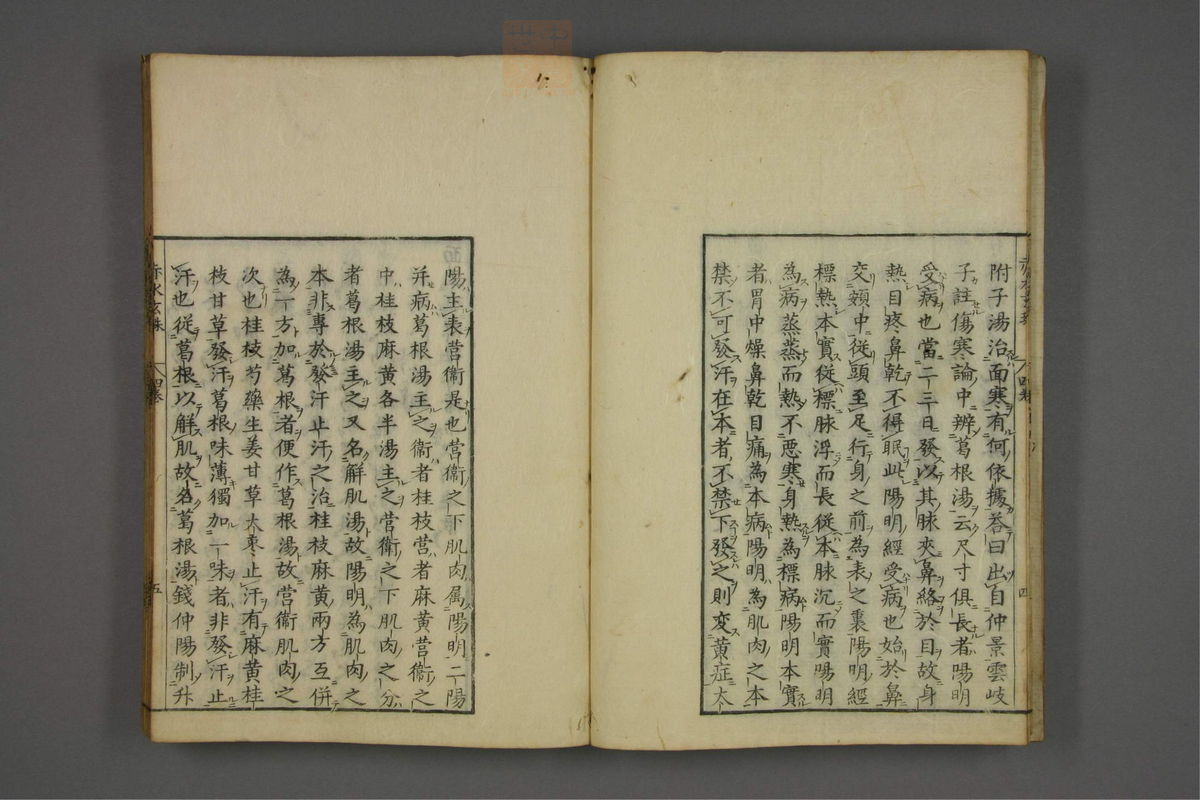 附子湯治面寒有何依據荅曰出自仲景雲岐
子註傷寒論中辨葛根湯云尺寸俱長者陽明
受病也當二三日發以其脉夾鼻絡於目故身
熱目疼鼻乾不得眠此陽明經受病也始於鼻
交頞中從頭至足行身之前為表之裏陽明經
標熱本實從標脉浮而長從本脉沉而實陽明
為病蒸蒸而熱不悪寒身熱為標病陽明本實
者胃中燥鼻乾目痛為本病陽明為肌肉之本
禁不可發汗在本者不禁下發之則変黄症太
四
陽主表営衛是也営衛之下肌肉属陽明二陽
并病葛根湯主之衛者桂枝営者麻黄営衛之
中桂枝麻黄各半湯主之営衛之下肌肉之分
者葛根湯主之又名解肌湯故陽明為肌肉之
本非專於發汗止汗之治桂枝麻黄兩方互併
為一方加葛根者便作葛根湯故営衛肌肉之
次也桂枝芍藥生姜甘草大枣止汗有麻黄桂
枝甘草發汗葛根味薄獨加一味者非發汗止
汗也從葛根以解肌故名葛根湯錢仲陽制升
赤水玄珠 四卷 五